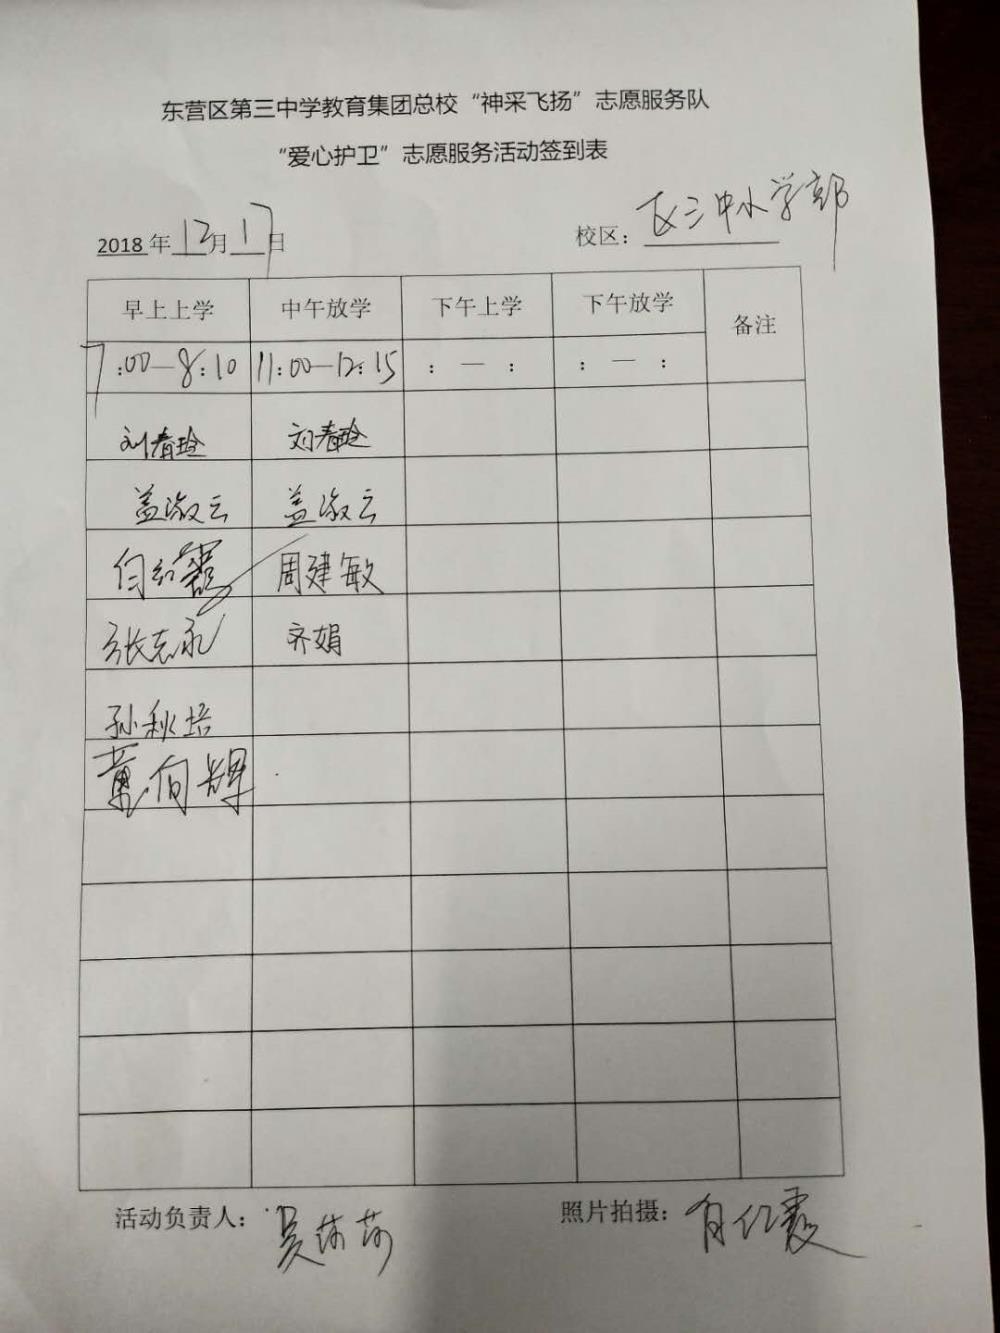 东营区第三中学教育集团总校“神采飞扬”志愿服务队
“爱心护卫”志愿服务活动签到表
2018年12月17日 校区：区三中小学部
早上上学 中午放学 下午上学 下午放学 备注
7:00—8:10 11:00—12:15 : — : : — :
刘春玲 刘春玲
盖淑云 盖淑云
周建敏
张志永 齐娟
孙秋培
黄向辉
活动负责人：吴莎莎 照片拍摄：肖红霞